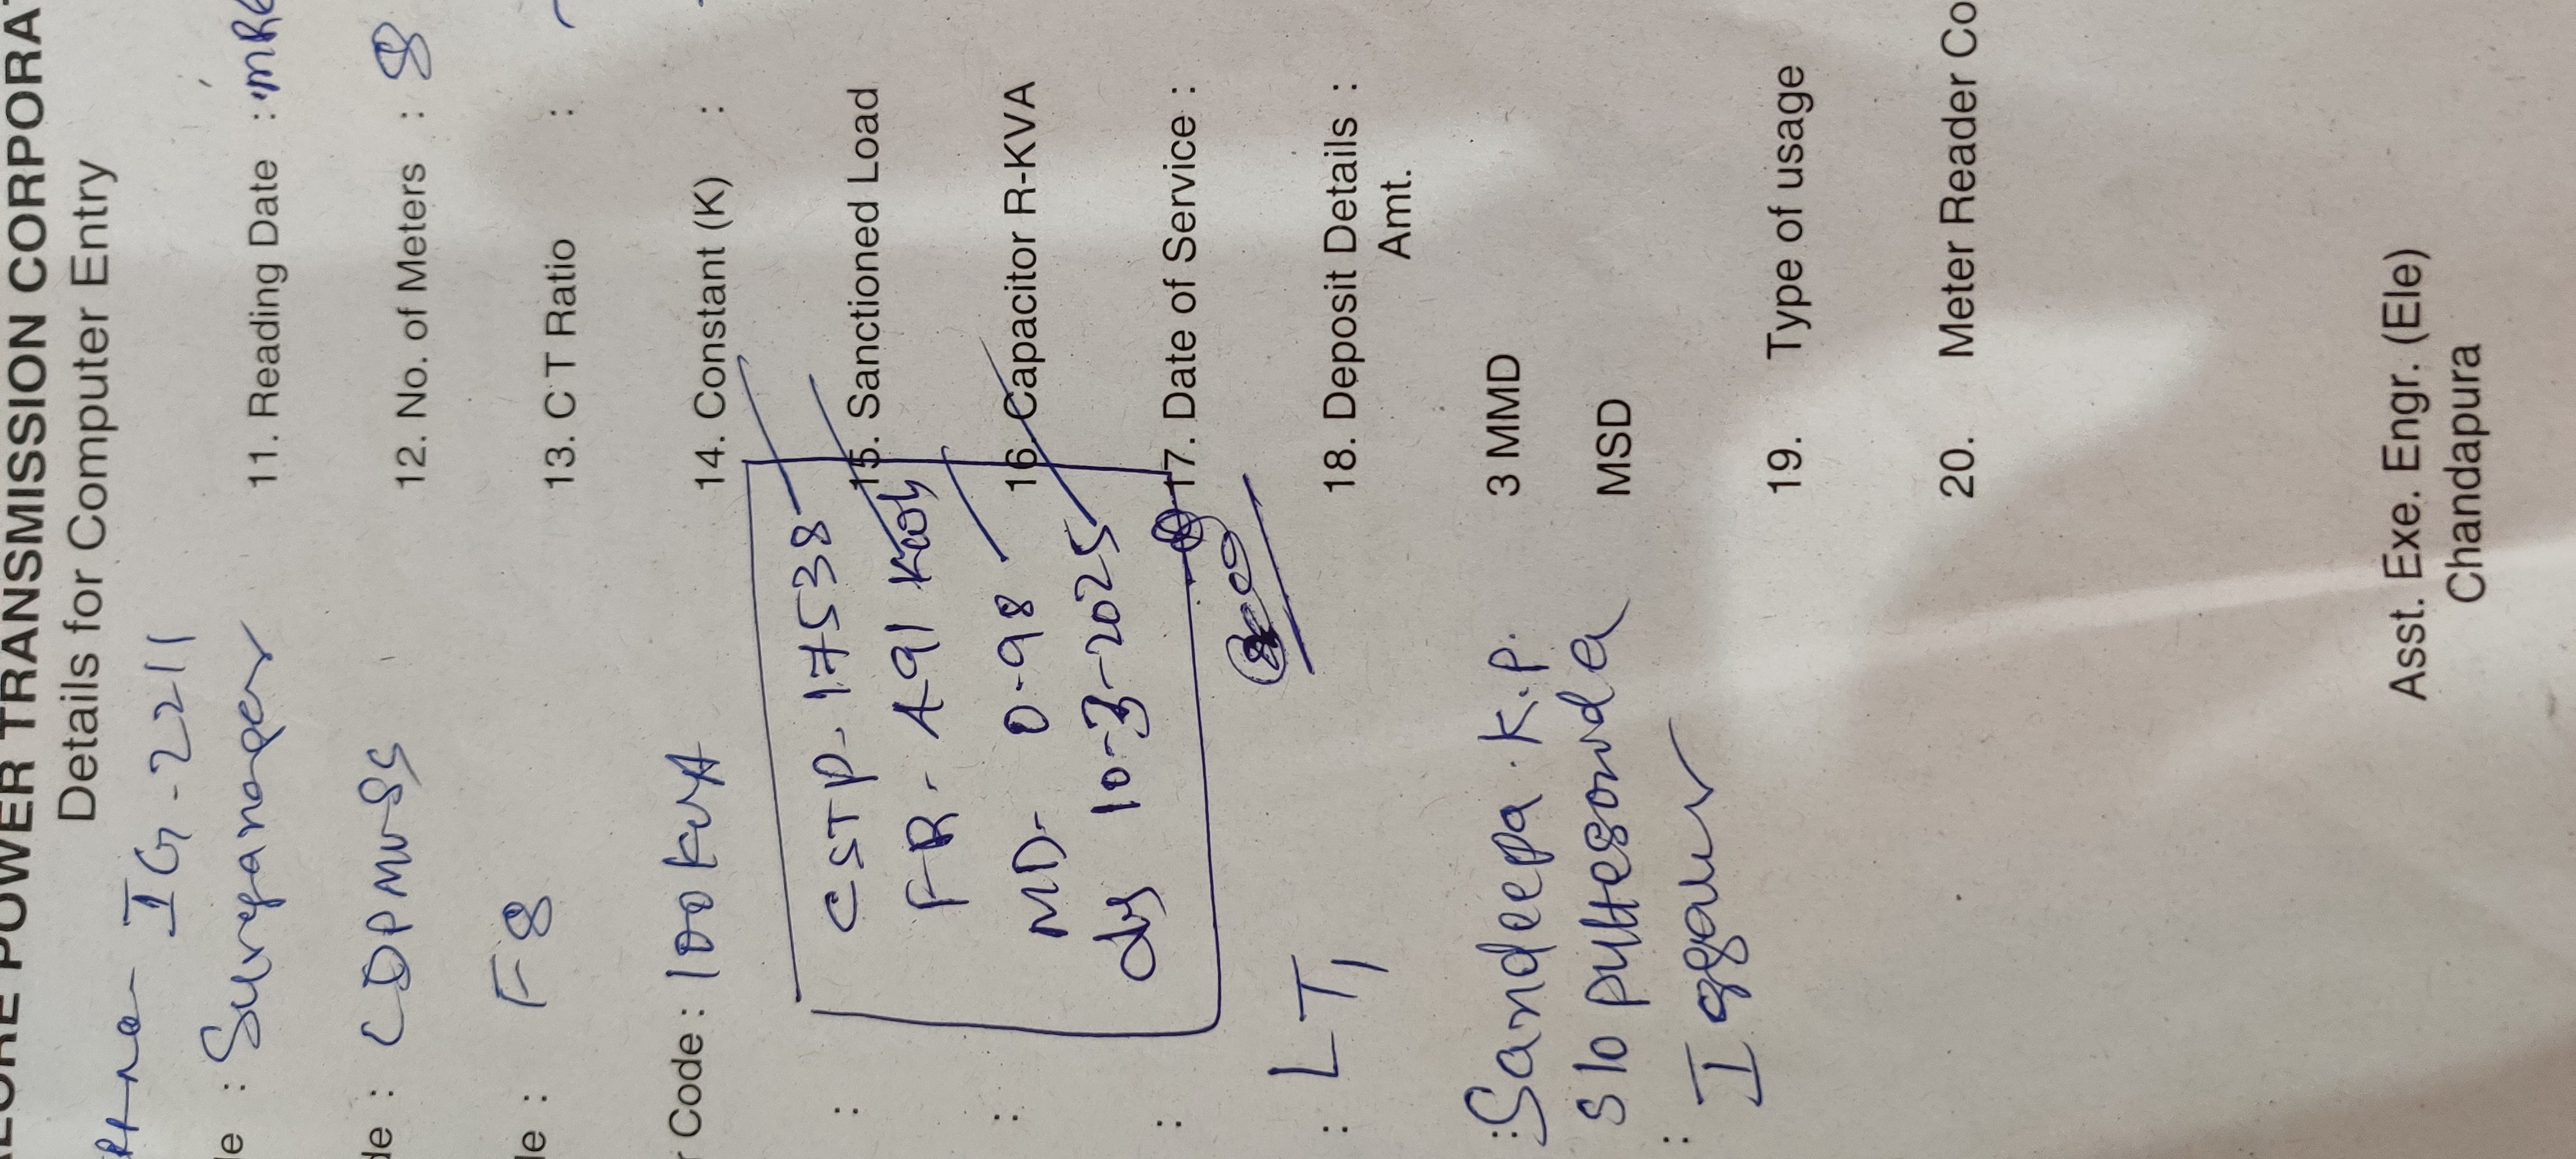 POWER TRANSMISSION CORPORA
Details for Computer Entry
IG-2211
: Suryanagar
: CDPMVSS
: F8
Code : 100 KVA
CSTP- 17538
FR- 491 kwh
MD- 0-98
10-3-2025
: LT1
: Sandeepa. K.P.
S/o puttegowda
: Iggalur
11. Reading Date :
12. No. of Meters : 8
13. C T Ratio :
14. Constant (K) :
15. Sanctioned Load
16. Capacitor R-KVA
17. Date of Service :
18. Deposit Details :
Amt.
3 MMD
MSD
19. Type of usage
20. Meter Reader Co
Asst. Exe. Engr. (Ele)
Chandapura